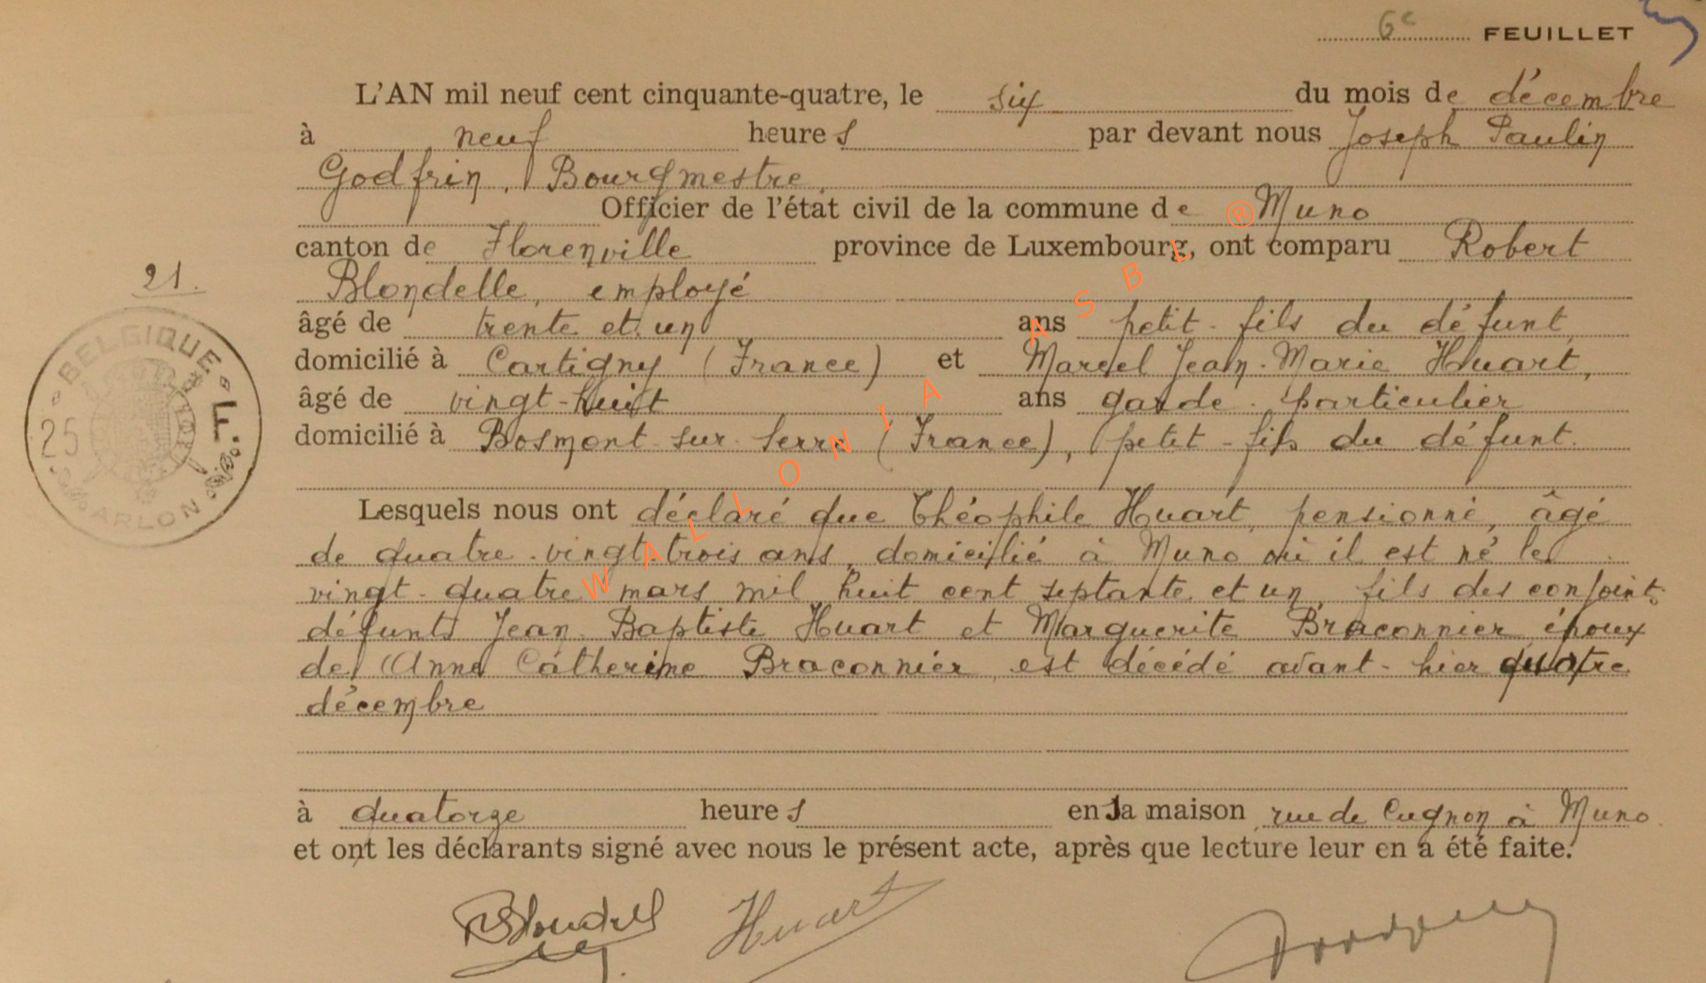 6e FEUILLET
L'AN mil neuf cent cinquante-quatre, le six du mois de décembre
à neuf heures par devant nous Joseph Paulin
Godfrin, Bourgmestre,
Officier de l'état civil de la commune de Muno
canton de Florenville province de Luxembourg, ont comparu Robert
21.
Blondelle, employé
âgé de trente et un ans petit-fils du défunt,
domicilié à Cartigny (France) et Marcel Jean-Marie Huart,
âgé de vingt-huit ans garde-particulier
domicilié à Bosmont-sur-Serre (France), petit-fils du défunt.
BELGIQUE
25 F.
ARLON
WALLONIA ASBL ®
Lesquels nous ont déclaré que Théophile Huart, pensionné, âgé
de quatre-vingt-trois ans, domicilié à Muno où il est né le
vingt-quatre mars mil huit cent septante et un, fils des conjoints
défunts Jean-Baptiste Huart et Marguerite Braconnier, époux
de Anne Catherine Braconnier, est décédé avant-hier quatre
décembre
à quatorze heures en sa maison rue de Cugnon à Muno.
et ont les déclarants signé avec nous le présent acte, après que lecture leur en a été faite.
Huart